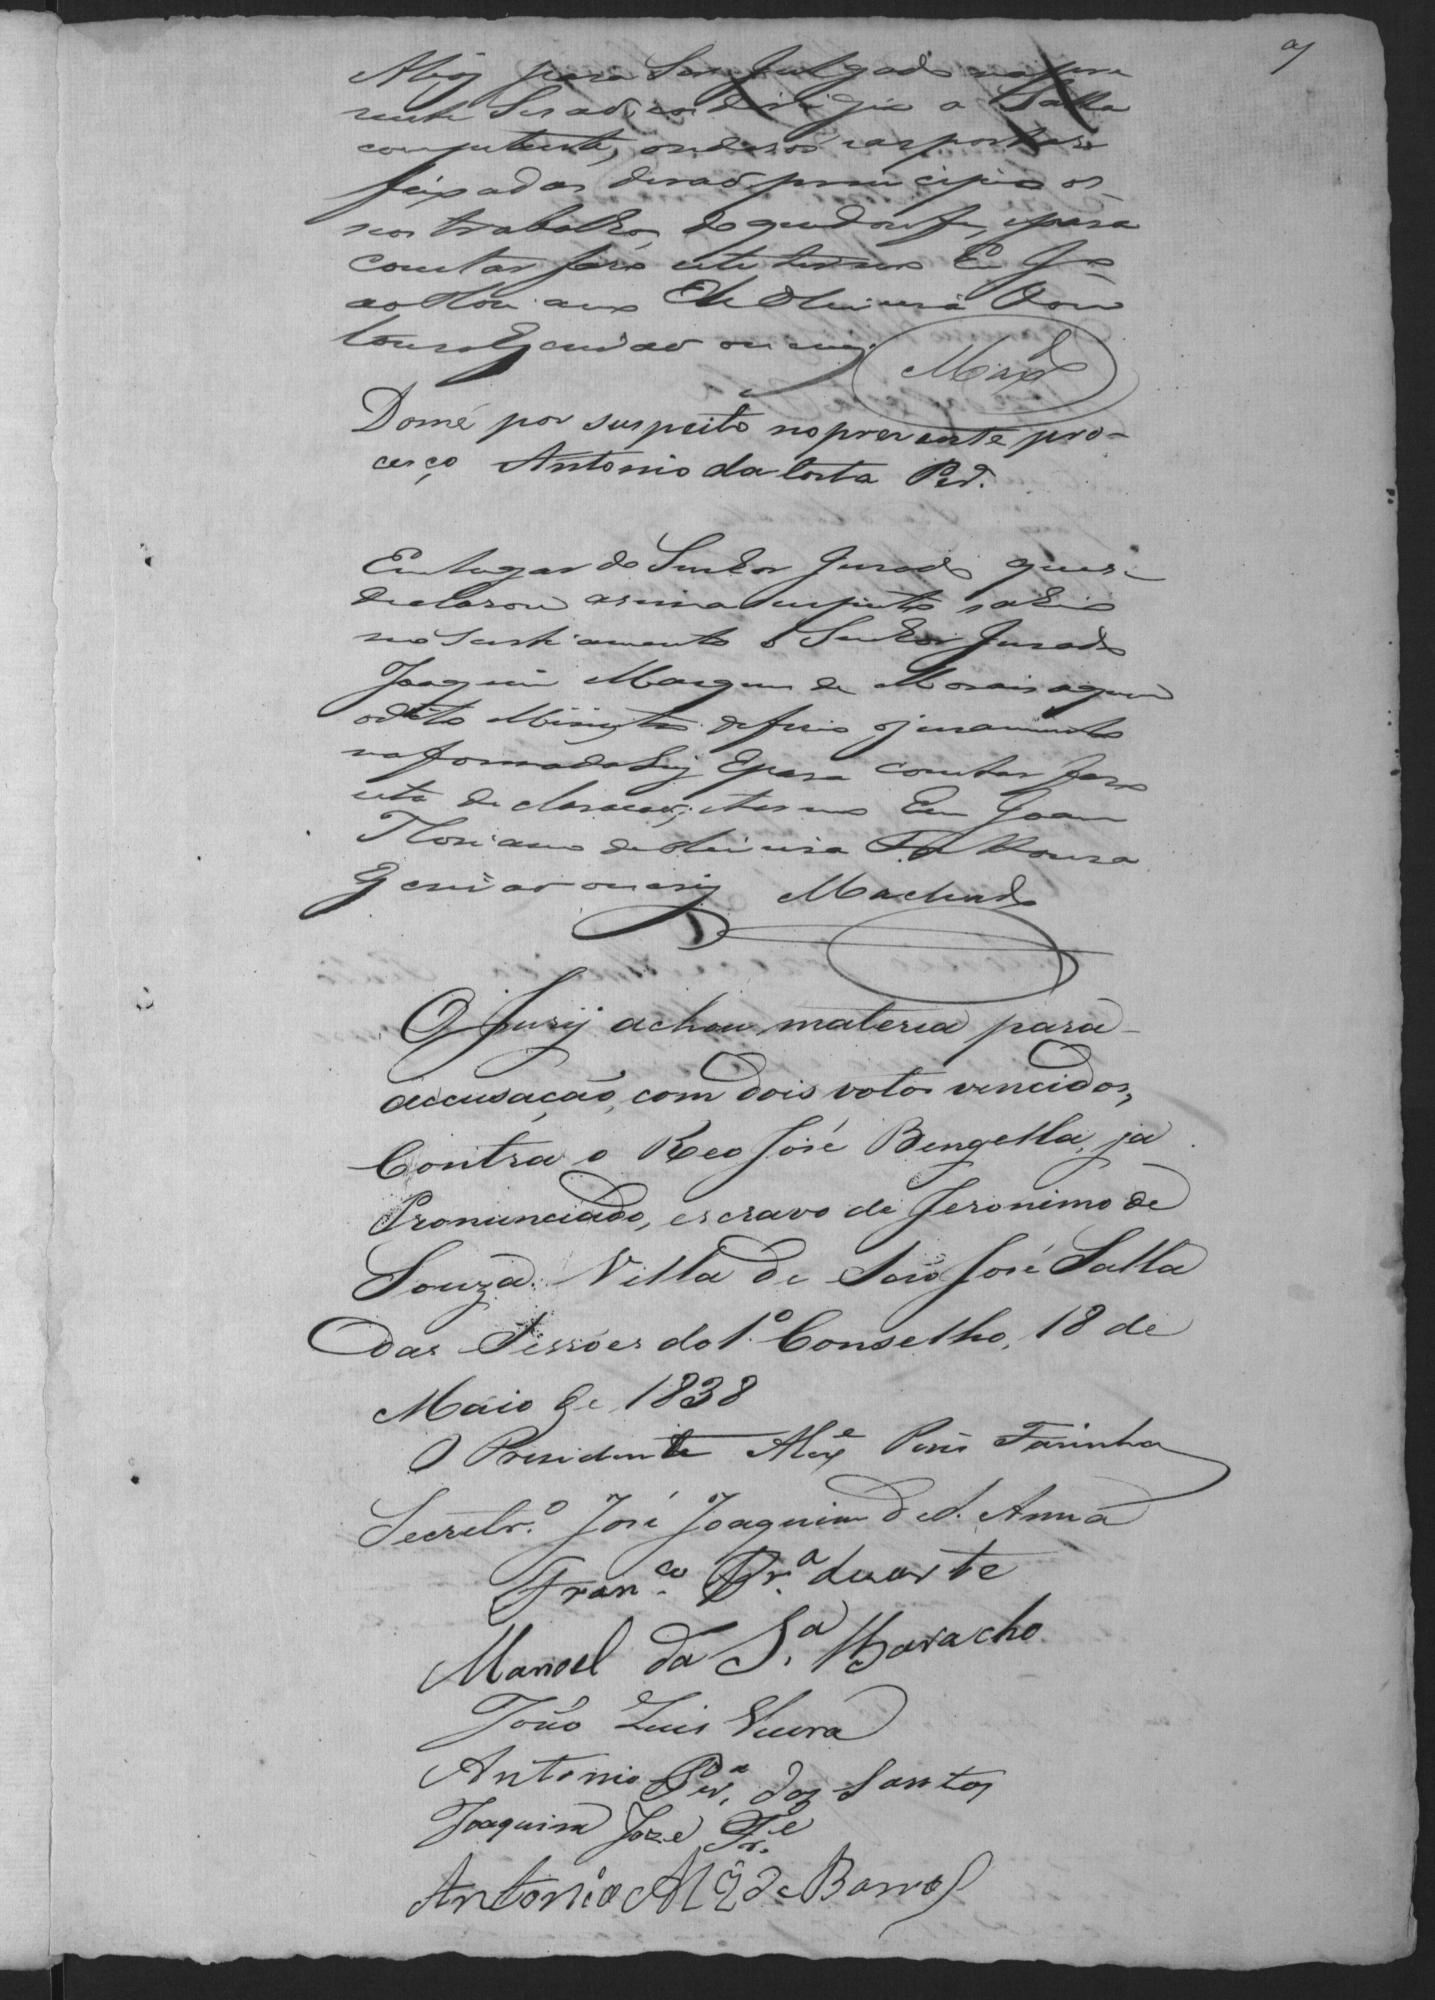 para Ser Julgado na pre
zente Sesaõ, e se dirigiu a Salla
competente, onde as portas
feixadas deraõ principio os
seos trabalhos, do que dou fe, e para
constar faço este termo Eu Jo
aõ Floriano de Oliveira
Escrivaõ o escrevy
Maxd
Dome por suspeito no prezente pro-
cesço Antonio da Costa Per.ª
Em lugar do Senhor Jurado que se
declarou asima suspeito sahio
o Senhor Jurado
Joaquim Marques de Morais a quem
o dito Ministro defirio o juramento
na forma da Ley E para constar faço
este declaraçaõ, e termo Eu Joam
Floriano de Oliveira
Escrivaõ o escrevy Machado
O Jurÿ achou materia para
accusação, com dois votos vencidos,
Contra o Reo José Bengella, ja
Pronunciado, escravo de Jeronimo de
Souza. Villa de São José Salla
das Sessões do 1.º Conselho, 18 de
Maio de 1838
O Presidente Alex.e Farinha
Secretr.º José Joaquim de S. Anna
Fran.co Pr.ª duarte
Manoel da S.ª
João Luis Vieira
Antonio Per.ª dos Santos
Joaquim Joze Fr.e
Antonio Alz de Barros